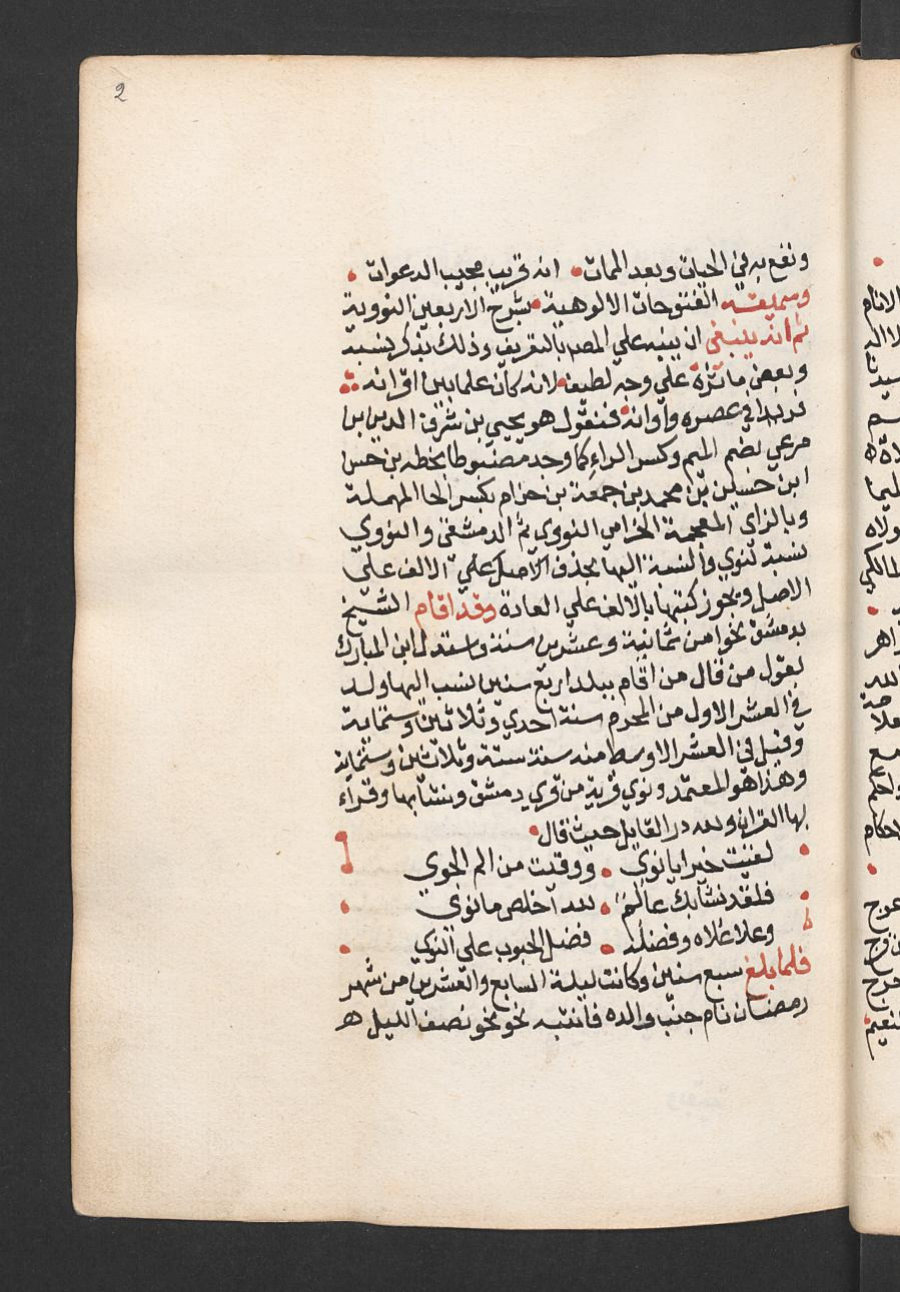 2
ونفع به في الحيات وبعد الممات انه قريب مجيب الدعوات
وسميته الفتوحات الالوهية بشرح الاربعين النووية
ثم انه ينبغي ان ينبه علي المصـ بالتعريف وذلك بذكر نسبه
وبعض ماثره علي وجه لطيف لانه كان علما بين اقرانه
فريدا في عصره واوانه فنقول هو يحيي بن شرف الدين ابن
مرعي بضم الميم وكسر الراء كما وجد مضبوطا بخطه بن حسن
ابن حسين بن محمد بن جمعة بن حزام بكسر الحا المهملة
وبالزاي المعجمة الحزامي النووي ثم الدمشقي والنووي
نسبة لنوي والنسبة اليها بحذف الالف علي
الاصل ويجوز كتبها بالالف علي العادة وقد اقام الشيخ
بدمشق نحوا من ثمانية وعشرين سنة واستدل ابن المبارك
بقول من قال من اقام ببلد اربع سنين نسب اليها ولد
في العشر الاول من المحرم سنة احدي وثلاثين وستماية
وقيل في العشر الاوسط منه سنة ستة وثلاثين وستماية
وهذا هو المعتمد ونوي قرية من قري دمشق ونشأ بها وقراء
بها القران ولله در القايل حيث قال
لقيت خيرا يا نوي ووقيت من الم الجوي
فلقد نشا بك عالم لله اخلص ما نوي
وعلا علاه وفضله فضل الحبوب علي النوي
فلما بلغ سبع سنين وكانت ليلة السابع والعشرين من شهر
رمضان نام جنب والده فانتبه نحو نحو نصف الليل